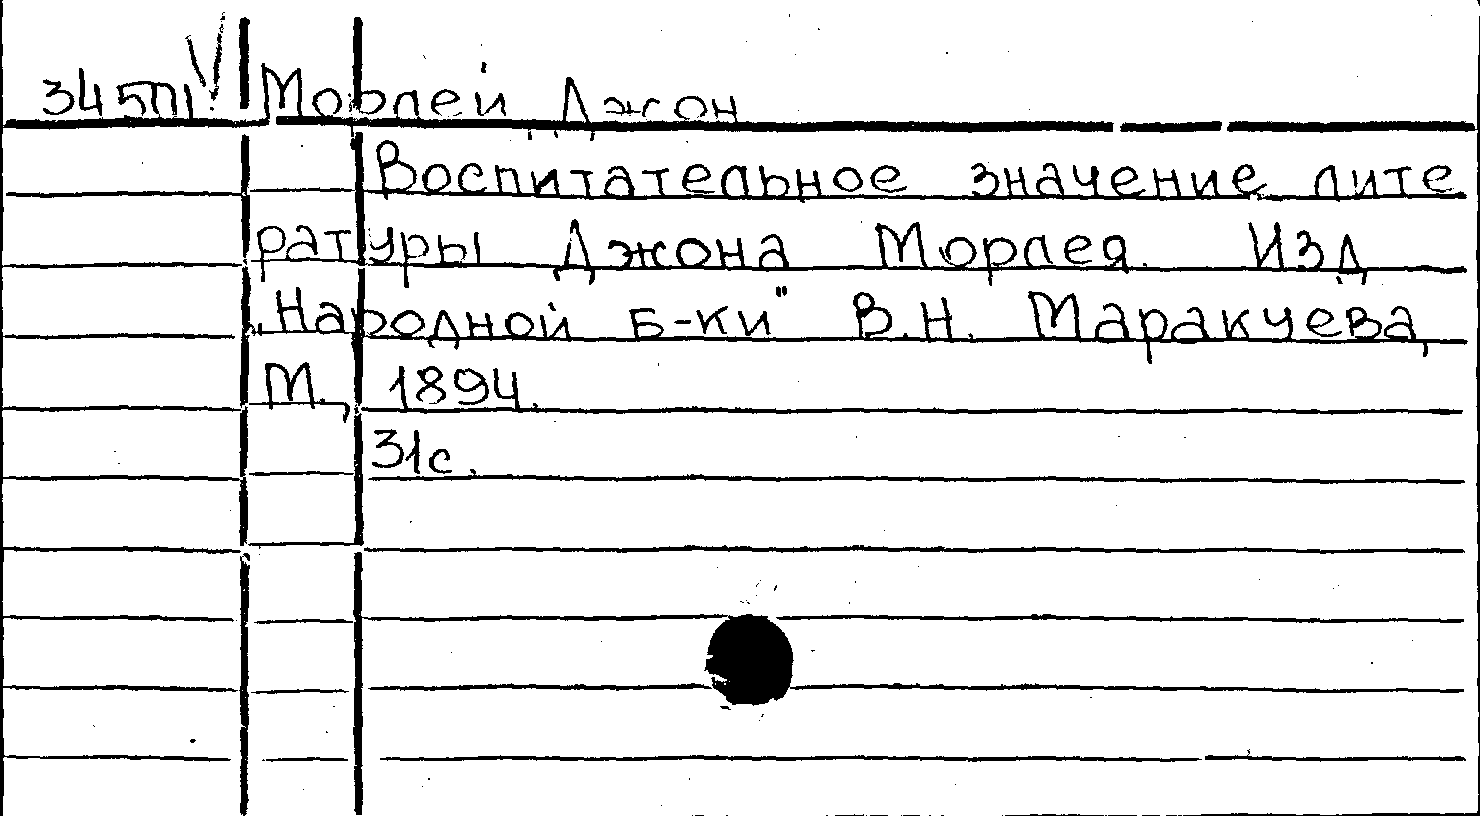 345П1 Морлей Джон
Воспитательное значение лите
ратуры Джона Морлея. Изд
„Народной Б-ки" В.Н. Маракуева,
М., 1894.
31с.